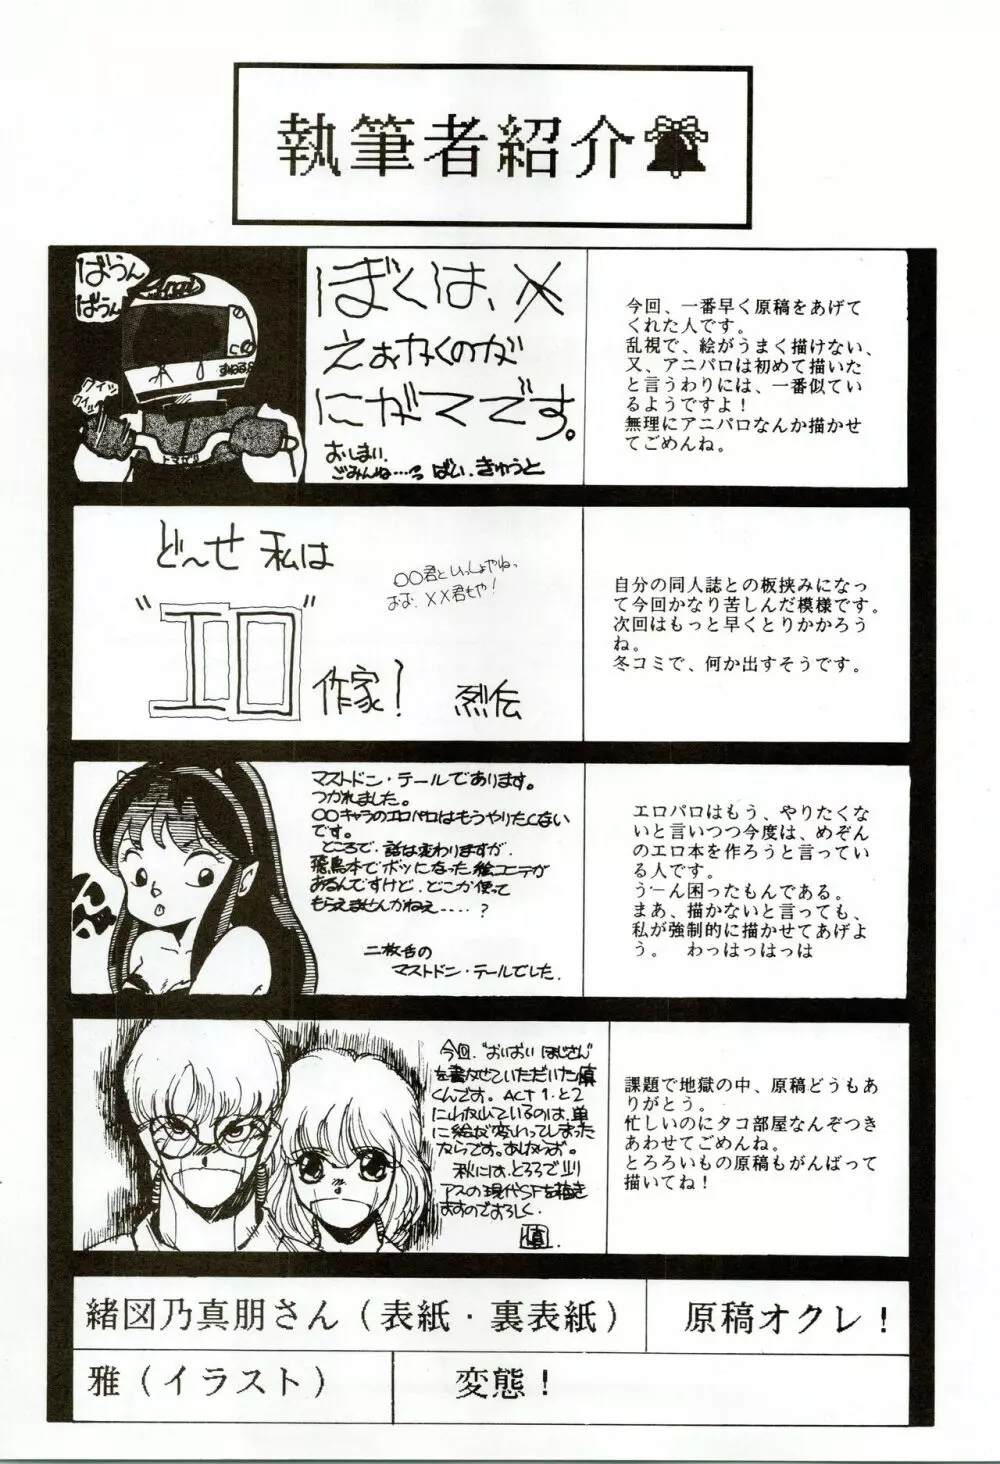 執筆者紹介
ばうん
ばうん
Arai
クイッ
クイッ
ぼくは、メ
えおかくのが
にがてです。
おしまい。
ごみんね……っ ばい.きゅうと
今回、一番早く原稿をあげて
くれた人です。
乱視で、絵がうまく描けない、
又、アニパロは初めて描いた
と言うわりには、一番似てい
るようですよ!
無理にアニパロなんか描かせ
てごめんね。
ど〜せ 私は
"エロ"
作家! 烈伝
○○君といっしょやね。
おお、××君もや!
自分の同人誌との板挟みになっ
て今回かなり苦しんだ模様です。
次回はもっと早くとりかかろう
ね。
冬コミで、何か出すそうです。
マストドン・テールであります。
つかれました。
○○キャラのエロパロはもうやりたくない
です。
ところで、話は変わりますが、
飛鳥本でボツになった絵コンテが
あるんですけど、どこか使って
もらえませんかねぇ....?
二枚舌の
マストドン・テールでした.
エロパロはもう、やりたくな
いと言いつつ今度は、めぞん
のエロ本を作ろうと言ってい
る人です。
うーん困ったもんである。
まあ、描かないと言っても、
私が強制的に描かせてあげよ
う。 わっはっはっは
今回、"おいおい はじさん"
を書かせていただいた慎
くんです。ACT1.と2
に山なれているのは、単
に絵が変わってしまった
からです。あしからず。
秋には、とろろで
アスの現代SFを描き
ますのでよろしく.
慎.
課題で地獄の中、原稿どうもあ
りがとう。
忙しいのにタコ部屋なんぞつき
あわせてごめんね。
とろろいもの原稿もがんばって
描いてね!
緒図乃真朋さん(表紙・裏表紙) 原稿オクレ!
雅(イラスト) 変態!